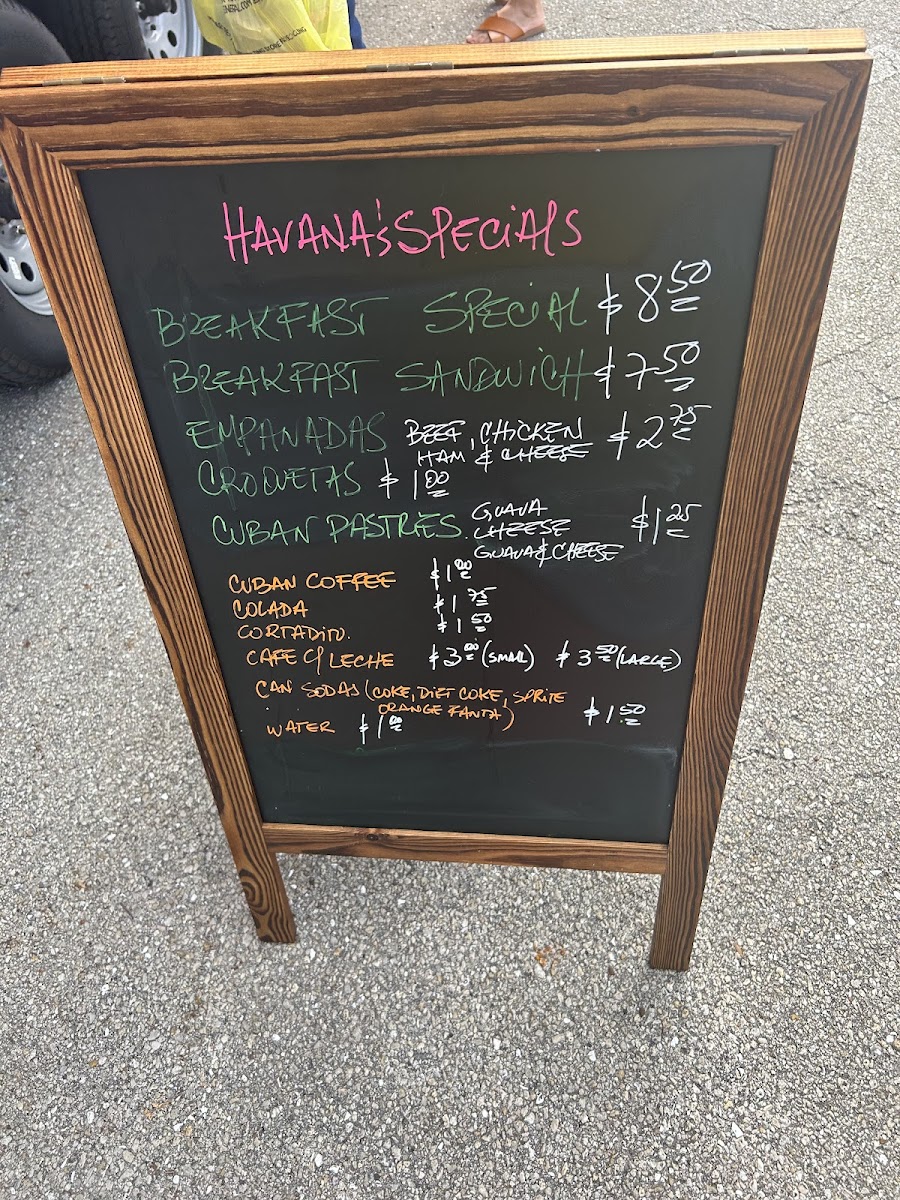 HAVANA'S SPECIALS
BREAKFAST SPECIAL $8.50
BREAKFAST SANDWICH $7.50
EMPANADAS BEEF, CHICKEN $2.75
HAM & CHEESE
CROQUETAS $1.00
CUBAN PASTRIES GUAVA $1.25
CHEESE
GUAVA & CHEESE
CUBAN COFFEE $1.00
COLADA $1.75
CORTADITO. $1.50
CAFE C/ LECHE $3.00 (SMALL) $3.50 (LARGE)
CAN SODAS (COKE, DIET COKE, SPRITE
ORANGE FANTA) $1.50
WATER $1.00